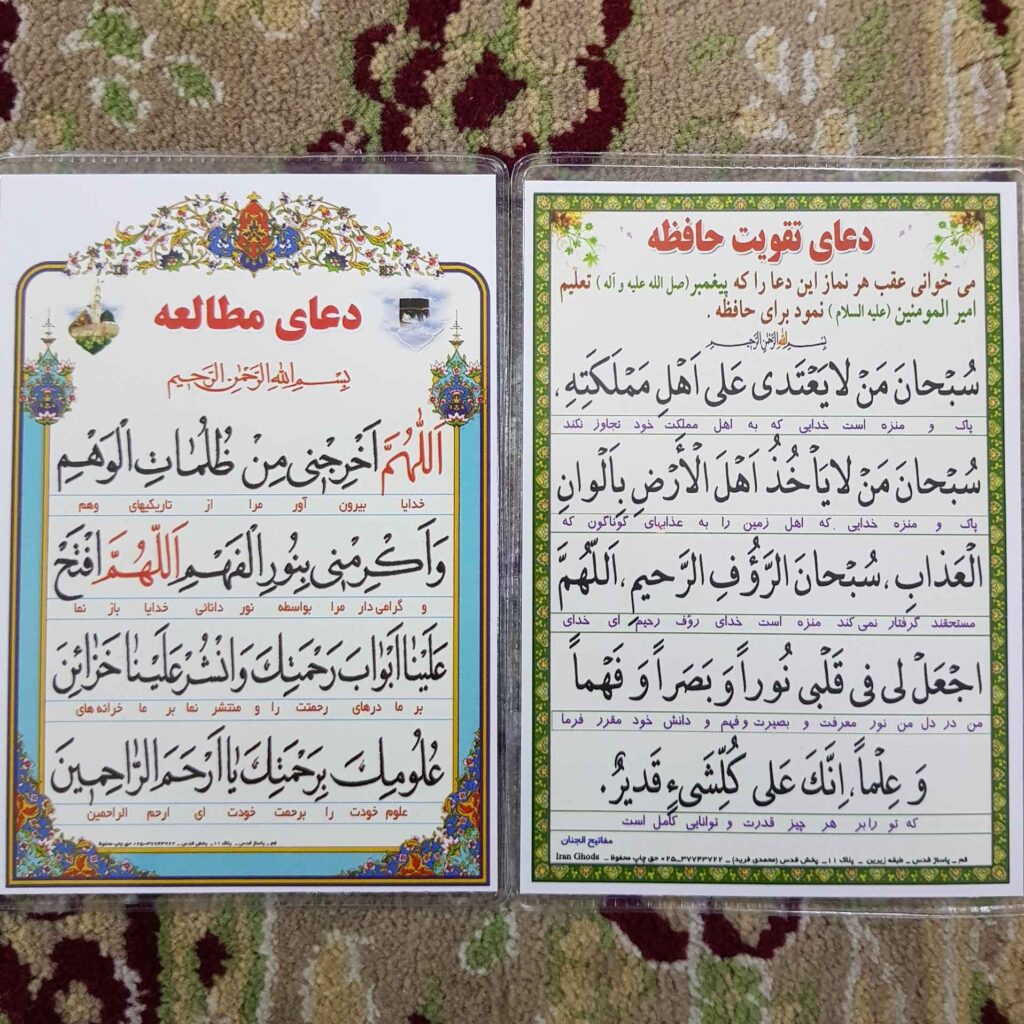 دعای مطالعه
بِسْمِ اللهِ الرَّحْمٰنِ الرَّحيمِ
اَللّٰهُمَّ اَخْرِجْنى مِنْ ظُلُماتِ الْوَهْمِ
خدایا بیرون آور مرا از تاریکیهای وهم
وَاَكْرِمْنى بِنُورِ الْفَهْمِ اَللّٰهُمَّ افْتَحْ
و گرامی دار مرا بواسطه نور دانائی خدایا باز نما
عَلَيْنا اَبْوابَ رَحْمَتِكَ وَانْشُرْ عَلَيْنا خَزائِنَ
بر ما درهای رحمتت را و منتشر نما بر ما خزانه های
عُلُومِكَ بِرَحْمَتِكَ يا اَرْحَمَ الرّاحِمينَ
علوم خودت را برحمت خودت ای ارحم الراحمین
قم ـ پاساژ قدس ـ پلاک ۱۱ـ پخش قدس ـ ۳۷۷۴۳۷۲۲ـ۰۲۵ حق چاپ محفوظ
دعای تقویت حافظه
می خوانی عقب هر نماز این دعا را که پیغمبر (صل الله علیه و آله) تعلیم
امیر المومنین (علیه السلام) نمود برای حافظه .
بِسْمِ اللهِ الرَّحْمٰنِ الرَّحيمِ
سُبْحانَ مَنْ لايَعْتَدى عَلى اَهْلِ مَمْلَكَتِهِ،
پاک و منزه است خدایی که به اهل مملکت خود تجاوز نکند
سُبْحانَ مَنْ لايَاْخُذُ اَهْلَ الْأَرْضِ بِاَلْوانِ
پاک و منزه خدایی که اهل زمین را به عذابهای گوناگون که
الْعَذابِ، سُبْحانَ الرَّؤُفِ الرَّحيمِ، اَللّٰهُمَّ
مستحقند گرفتار نمی کند منزه است خدای رؤف رحیم ای خدای
اجْعَلْ لى فى قَلْبى نُوراً وَ بَصَراً وَ فَهْماً
من در دل من نور معرفت و بصیرت و فهم و دانش خود مقرر فرما
وَ عِلْماً، اِنَّكَ عَلى كُلِّشَىءٍ قَديرٌ.
که تو را بر هر چیز قدرت و توانایی کامل است
مفاتیح الجنان
قم ـ پاساژ قدس ـ طبقه زیرین ـ پلاک ۱۱ـ پخش قدس (محمدی فرید) ـ ۳۷۷۴۳۷۲۲ـ۰۲۵ حق چاپ محفوظ ـ Iran Ghods